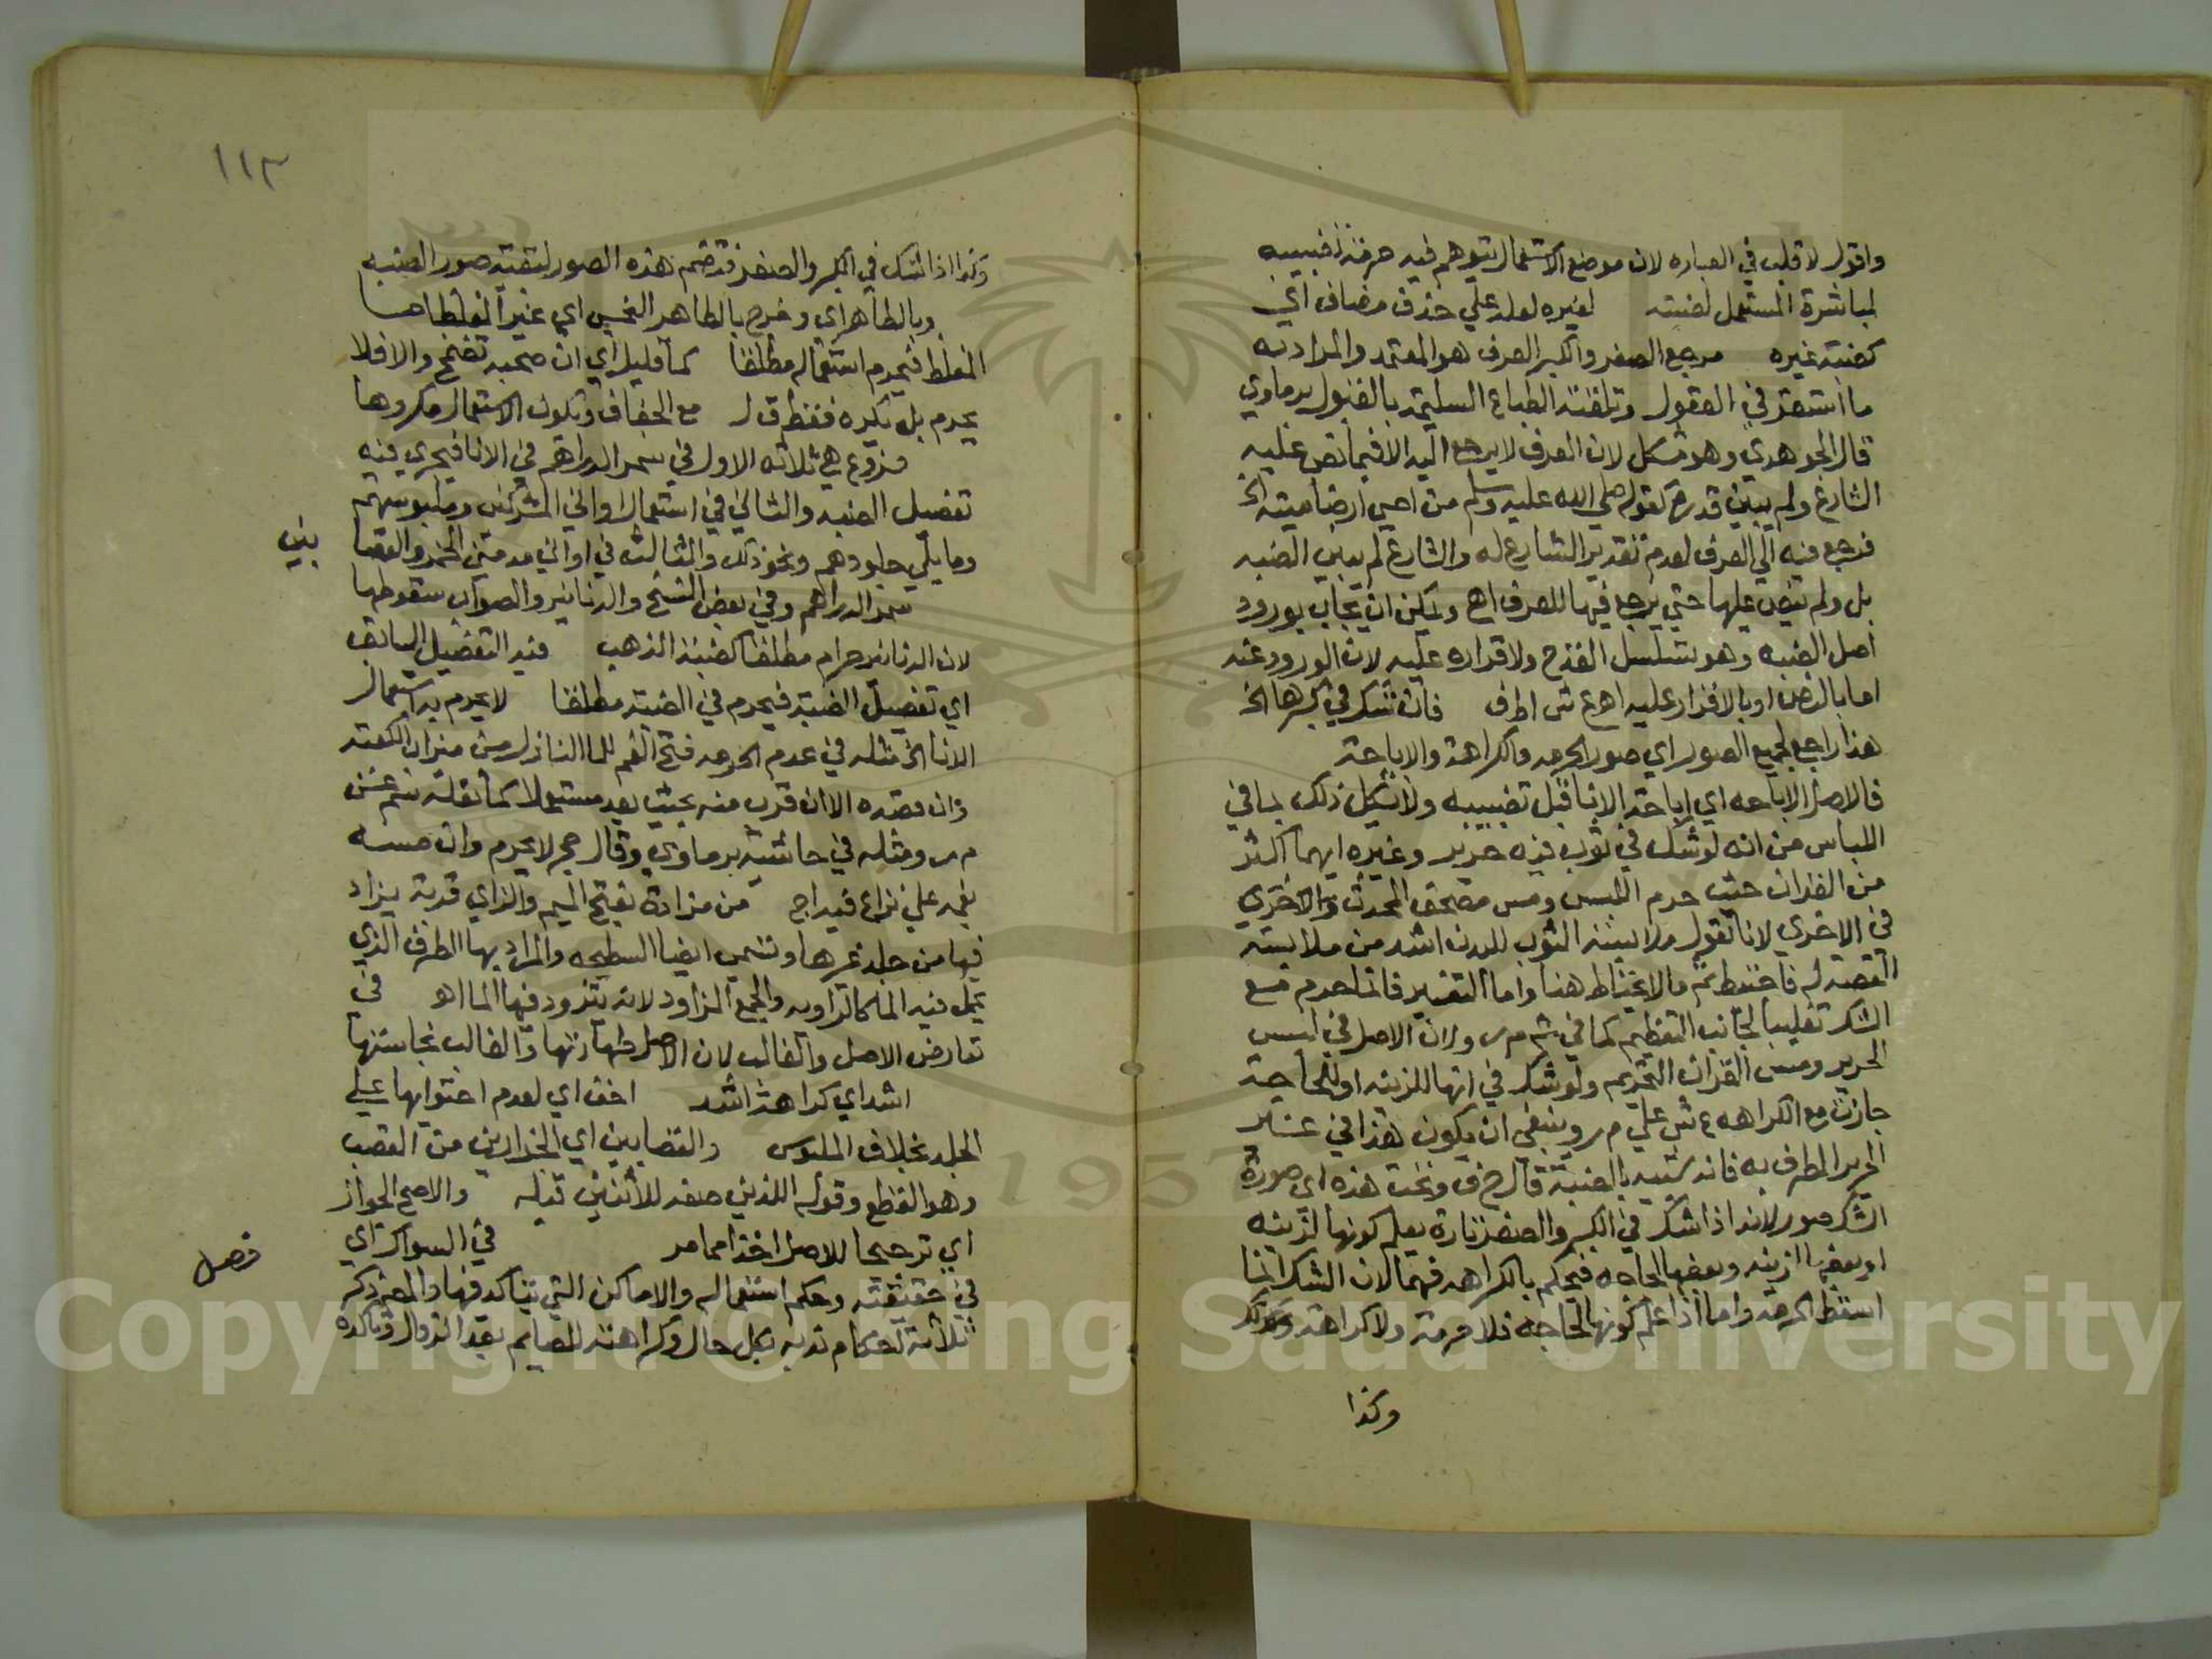 واقول لا قلب في العباره لان موضع الاستعمال يتوهم فيه حرمة تضبيبه
لمباشرة المستعمل لضبته لغيره لعله علي حذف مضاف اي
كضبة غيره مرجع الصغر والكبر العرف هو المعتمد والمراد به
ما استقر في العقول وتلقته الطباع السليمة بالقبول برماوي
قال الجوهدي وهو مشكل لان العرف لا يرجع اليه الا فيما نص عليه
الشارع ولم يبين قدره كقوله صلي الله عليه وسلم من احيي ارضا ميته الخ
فرجع فيه الي العرف لعدم تقدير الشارع له والشارع لم يبين الضبه
بل ولم ينص عليها حتي يرجع فيها للعرف اهـ ويمكن ان يجاب بورود
اصل الضبه وهو تسلسل القدح ولا قراره عليه لان الورود عنه
اما بالنص او بالاقرار عليه اهـ ع ش اطف فان شك في كبرها الخ
هذا راجع لجميع الصور اي صور الحرمه والكراهة والاباحة
فالاصل الاباحه اي اباحة الانا قبل تضبيبه ولا يشكل ذلك بما في
اللباس من انه لو شك في ثوب فيه حرير وغيره ايهما اكثر
من القران حيث حرم اللبس ومس مصحف المحدث
في الاخري لانا نقول ملابسة الثوب للبدن اشد من ملابسة
الضبه له فاحتيط ثم ما لا يحتاط هنا واما التفسير فانما حرم مع
الشك تغليبا لجانب التعظيم كما في شم م ر ولان الاصل في لبس
الحرير ومس القران التحريم ولو شك في انها للزينه او للحاجة
جازت مع الكراهه ع ش علي م ر وينبغي ان يكون هذا في غير
الحرير المطرف به فانه شبيه بالضبة قال خ ف وتحت هذه اي صورة
الشك صور لانه اذا شك في الكبر والصغر تارة يعلم كونها لزينه
او بعضها لزينه وبعضها لحاجه فيحكم بالكراهه فيهما لان الشك انما
اسقط الحرمة واما اذا علم كونها لحاجه فلا حرمة ولا كراهة وكذلك
وكذا
١١٣
وكذا اذا شك في الكبر والصغر فتضم هذه الصور لبقية صور الضبه
وبالطاهر اي وخرج بالطاهر النجس اي غير المغلظ اما
المغلظ فيحرم استعماله مطلقا كما قليل اي ان صحبه تضمخ والا فلا
يحرم بل يكره فقط ق ل مع الجفاف ويكون الاستعمال مكروها
فروع هي ثلاثه الاول في سمر الدراهم في الانا فيجري فيه
تفصيل الضبه والثاني في استعمال اواني المشركين وملبوسهم
وما يلي جلودهم ونحو ذلك والثالث في اواني مدمني الخمر والقصا
بين
سمر الدراهم وفي بعض النسخ والدنانير والصواب سقوطها
لان الدنانير حرام مطلقا كضبة الذهب فيه التفصيل السابق
اي تفصيل الضبة فيحرم في الضبة مطلقا لا يحرم به استعمال
الانا الخ مثله في عدم الحرمه فتح الفم للما النازل من ميزاب الكعبة
وان قصده الا ان قرب منه بحيث يعد مستعملا كما نقله سم عن
م ر ومثله في حاشية برماوي وقال حج لا يحرم وان مسه
بفمه علي نزاع فيه اج من مزادة بفتح الميم والزاي قربة يزاد
فيها من جلد غيرها وتسمي ايضا السطيحه والمراد بها الظرف الذي
يحمل فيه الما كالراويه والجمع المزاود لانه يتزود فيها الما اهـ في
تعارض الاصل والغالب لان الاصل طهارتها والغالب نجاستها
اشد اي كراهة اشد اخف اي لعدم احتوايها علي
الجلد بخلاف الملبوس والقصابين اي الجزارين من القصب
وهو القطع وقوله اللذين صفه للاثنين قبله والاصح الجواز
اي ترجيحا للاصل اخذا مما مر في السواك اي
فصل
في حقيقته وحكم استعماله والاماكن التي يتاكد فيها والمصـ ذكر
ثلاثة احكام ندبه بكل حال وكراهته للصايم بعد الزوال وتاكده
Copyright © King Saud University
1957